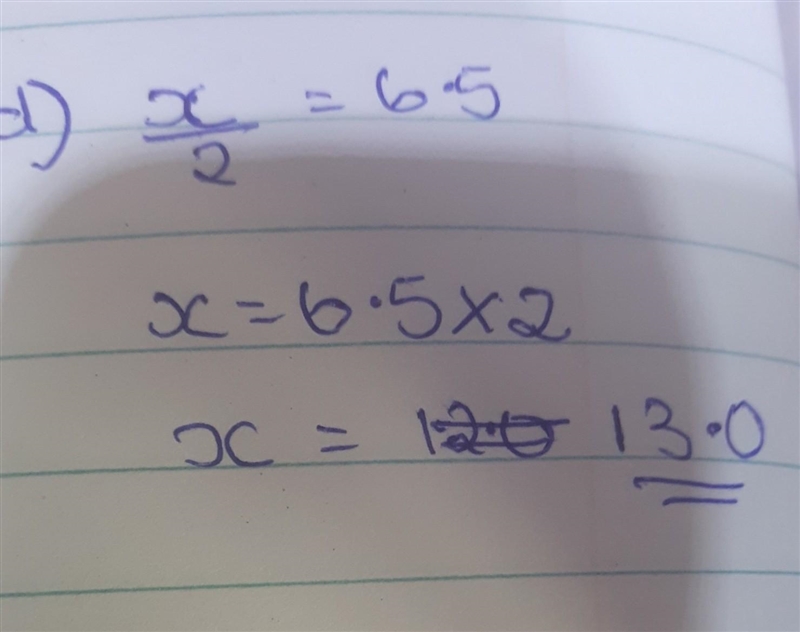 d) x/2 = 6.5
x = 6.5 × 2
x = 12.0 13.0